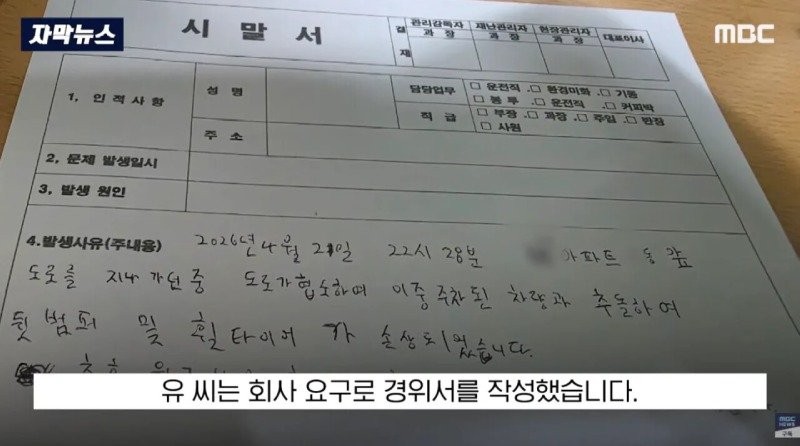 자막뉴스
MBC
시 말 서
결재
관리감독자 과장
재난관리자 과장
현장관리자 과장
대표이사
1. 인적사항
성 명
담당업무
□ 운전직 .□ 환경미화 .□ 기동
□ 봉투 .□ 운전직 .□ 커피박
직 급
□ 부장 .□ 과장 .□ 주임 .□ 반장
□ 사원
주 소
2. 문제 발생일시
3. 발생 원인
4.발생사유(주내용) 2026년 4월 21일 22시 28분 아파트 동
도로를 지나 가던중 도로가 협소하여 이중주차된 차량과 추돌하여
뒷 범퍼 및 휠타이어 가 손상되었습니다.
유 씨는 회사 요구로 경위서를 작성했습니다.
MBC
NEWS
구독